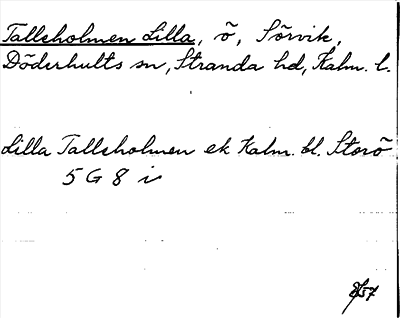 Tallsholmen Lilla, ö, Sörvik,
Döderhults sn, Stranda hd, Kalm. l.
Lilla Tallsholmen ek Kalm. bl. Storö
5 G 8 i